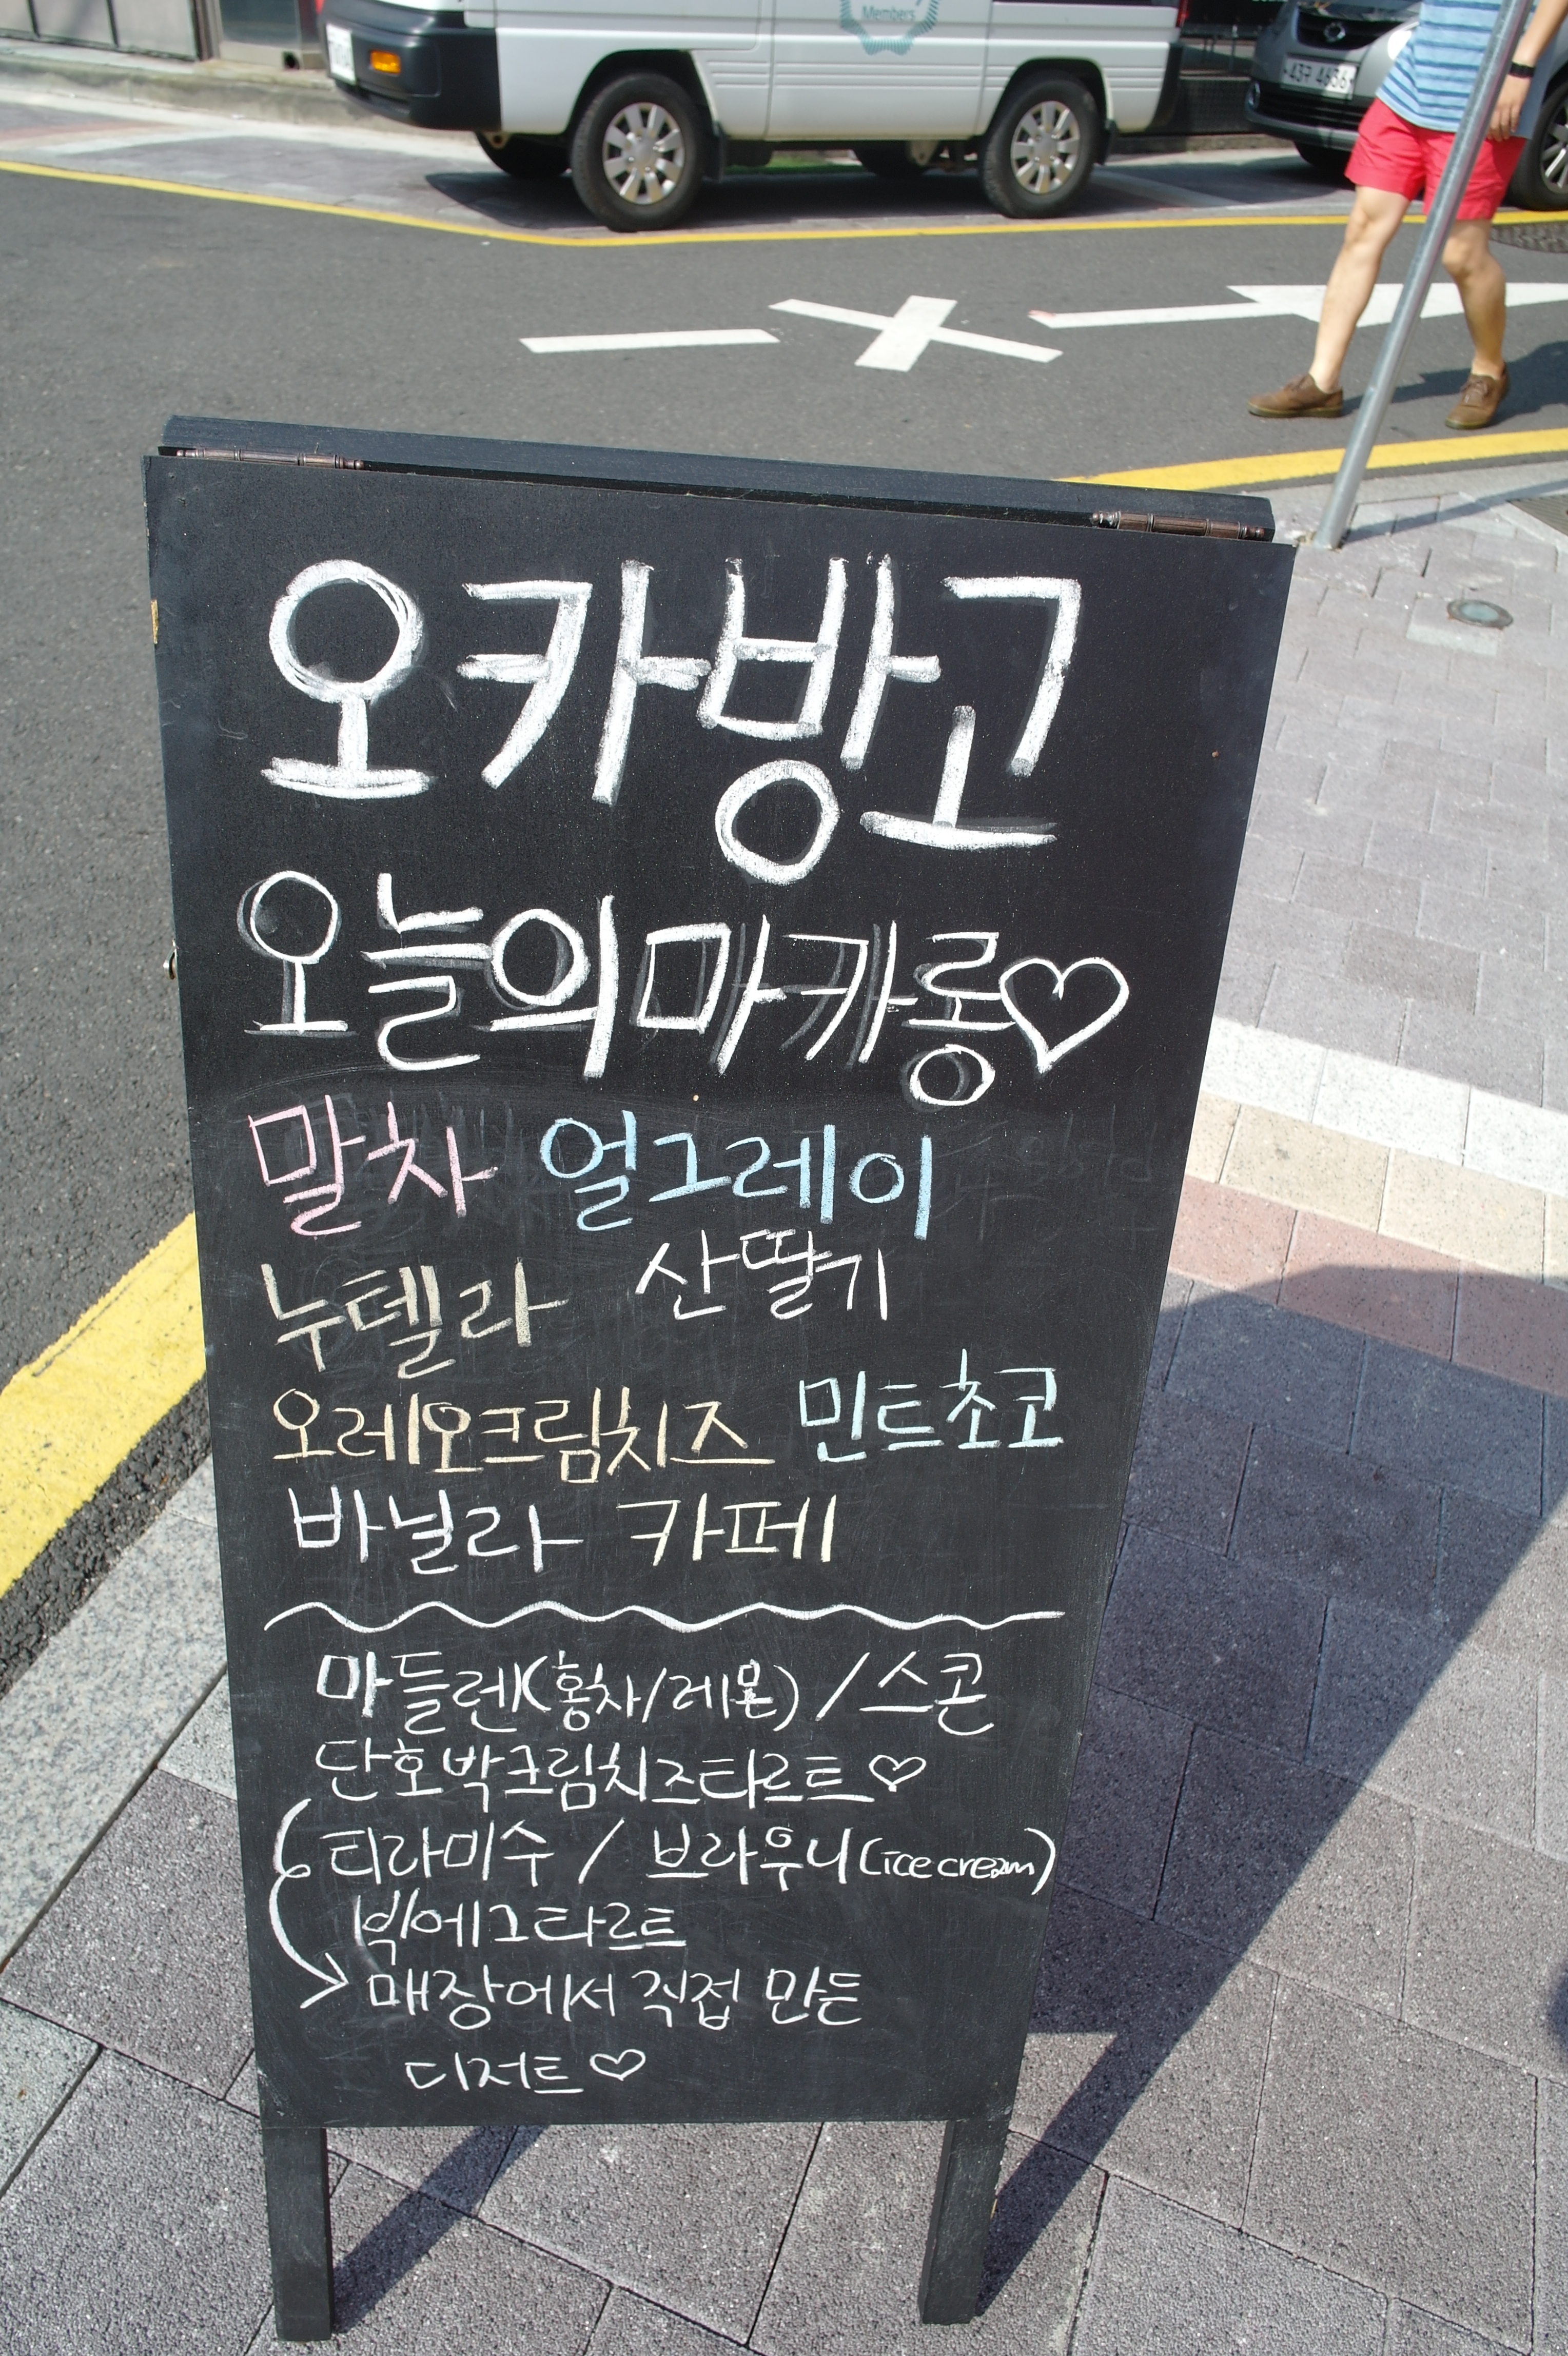 Members
43구 4636
오카방고
오늘의 마카롱♡
말차 얼그레이
누텔라 산딸기
오레오크림치즈 민트초코
바닐라 카페
마들렌(홍차/레몬) / 스콘
단호박크림치즈타르트♡
티라미수 / 브라우니(ice cream)
빅에그타르트
매장에서 직접 만든
디저트♡